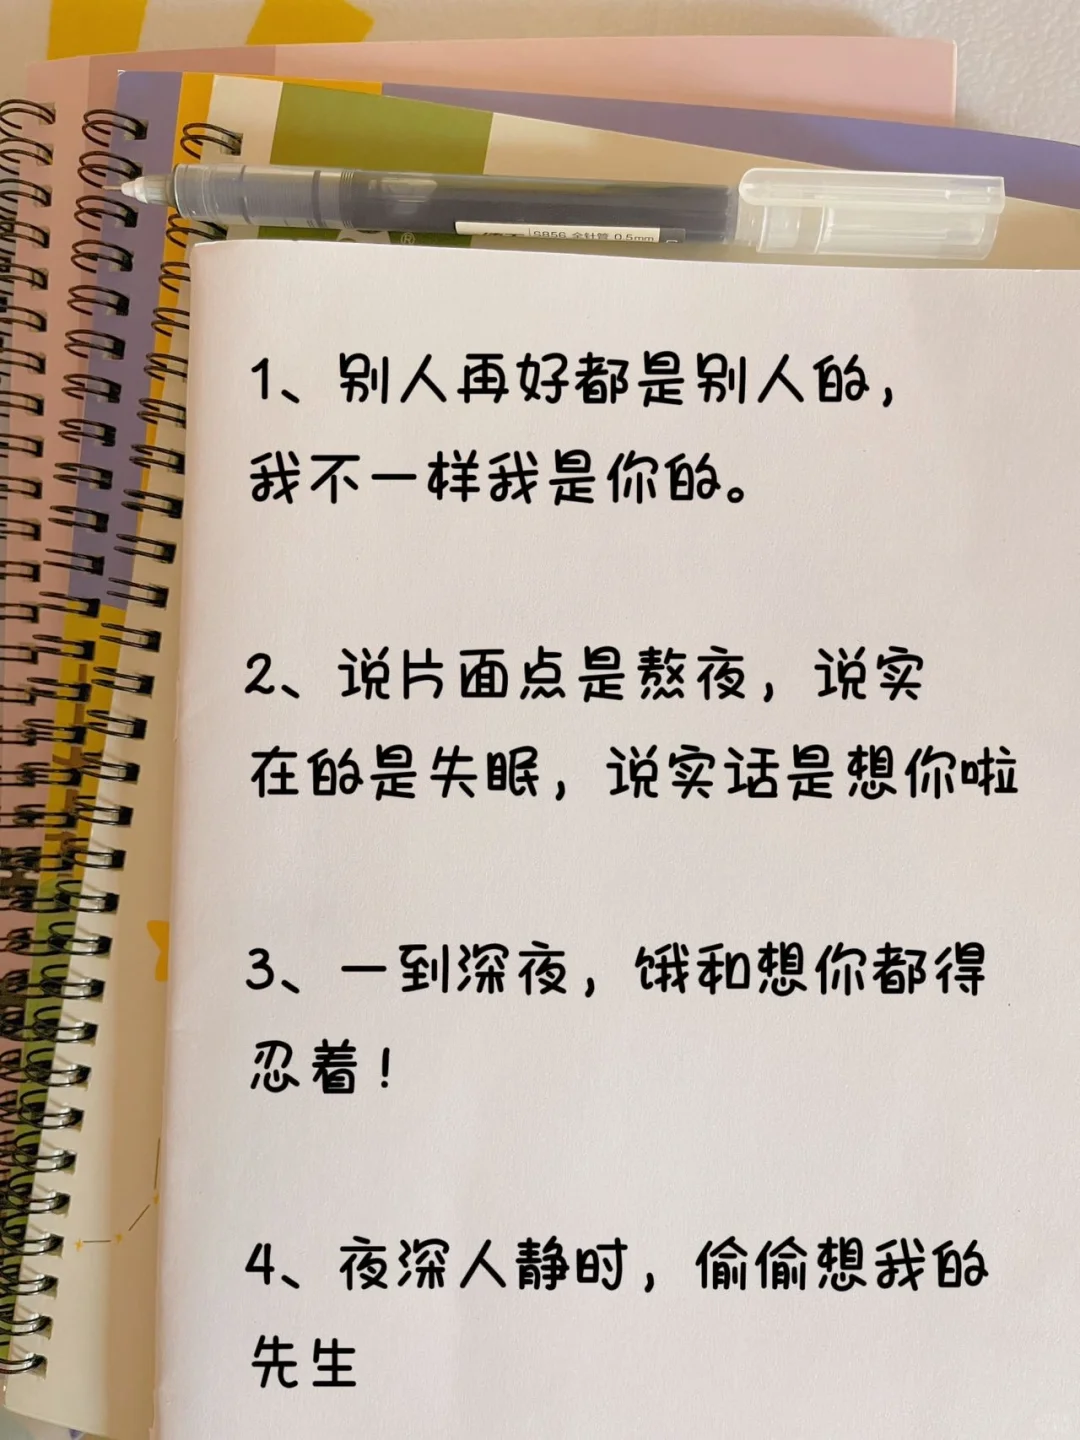 S856 全针管 0.5mm
®
1、别人再好都是别人的，
我不一样我是你的。
2、说片面点是熬夜，说实
在的是失眠，说实话是想你啦
3、一到深夜，饿和想你都得
忍着！
4、夜深人静时，偷偷想我的
先生